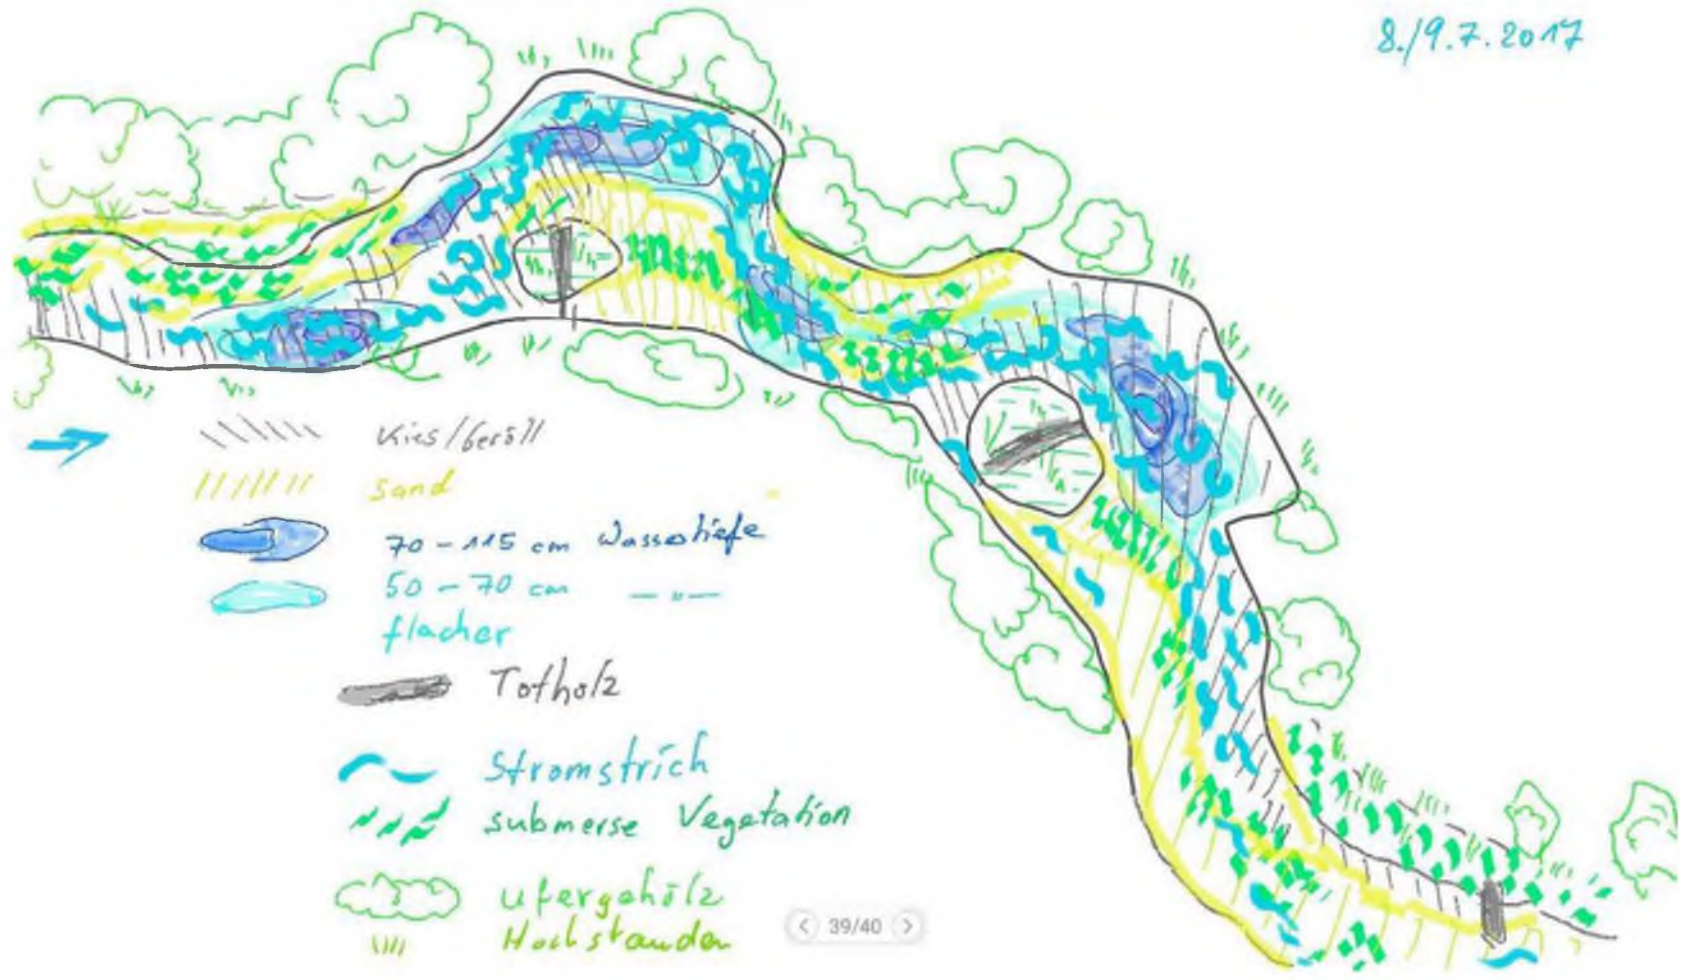 8./9.7.2017
Kies/Geröll
Sand
70-115 cm Wassertiefe
50-70 cm —"—
flacher
Totholz
Stromstrich
submerse Vegetation
Ufergehölz
Hochstauden
39/40